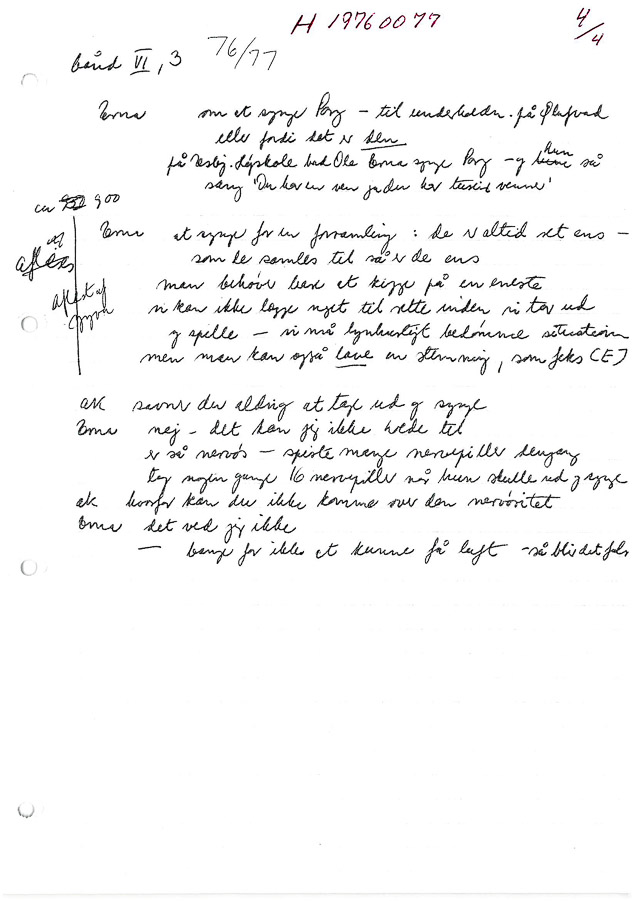 H 19760077
4/4
76/77
bånd VI, 3
Erna om at synge Porg – til underholdn. på
eller fordi det er den
på Højskole bad Ole Erna synge Porg – og hun så
sang 'Du har en ven ja du har tusind venner'
ca 900
Erna at synge for en forsamling : de er altid set ens –
som de samles til så er de ens
man behøver bare at kigge på en eneste
vi kan ikke lægge noget til rette inden vi tar ud
og spille – vi må lynhurtigt bedømme situationen
men man kan også lave en stemning, som feks (E)
ak savner du aldrig at tage ud og synge
Erna nej – det kan jeg ikke holde til
er så nervøs – spiste mange nervepiller dengang
tog nogen gange 16 nervepiller når hun skulle ud og synge
ak hvorfor kan du ikke komme over den nervøsitet
Erna det ved jeg ikke
– bange for ikke at kunne få luft – så blir det